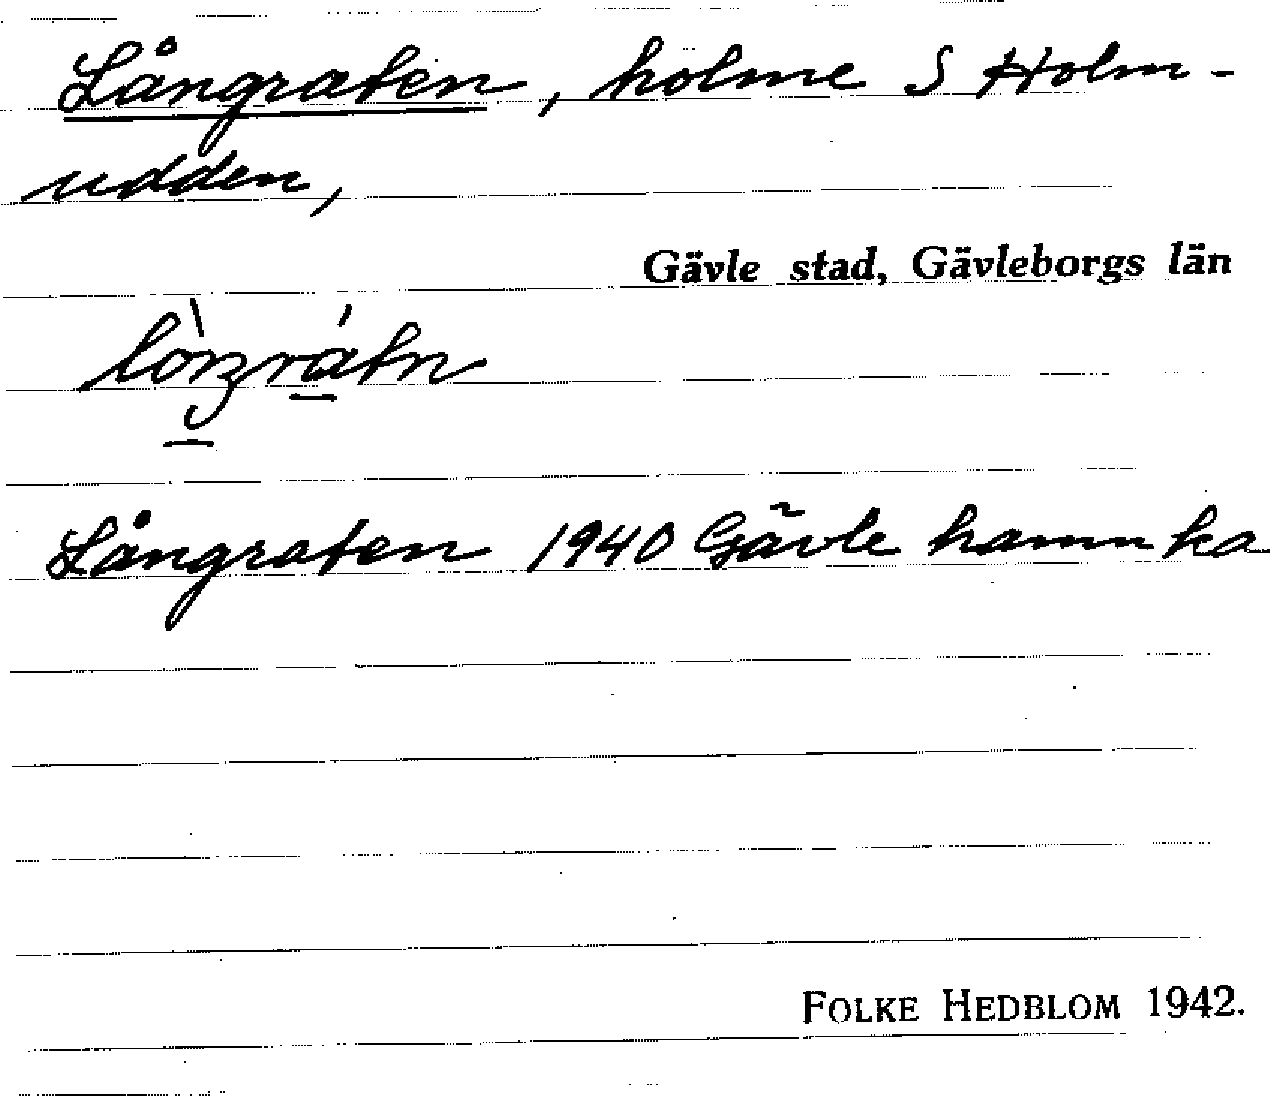 Långraten, holme S Holm-
udden,
Gävle stad, Gävleborgs län
Långraten 1940 Gävle hamnka
FOLKE HEDBLOM 1942.